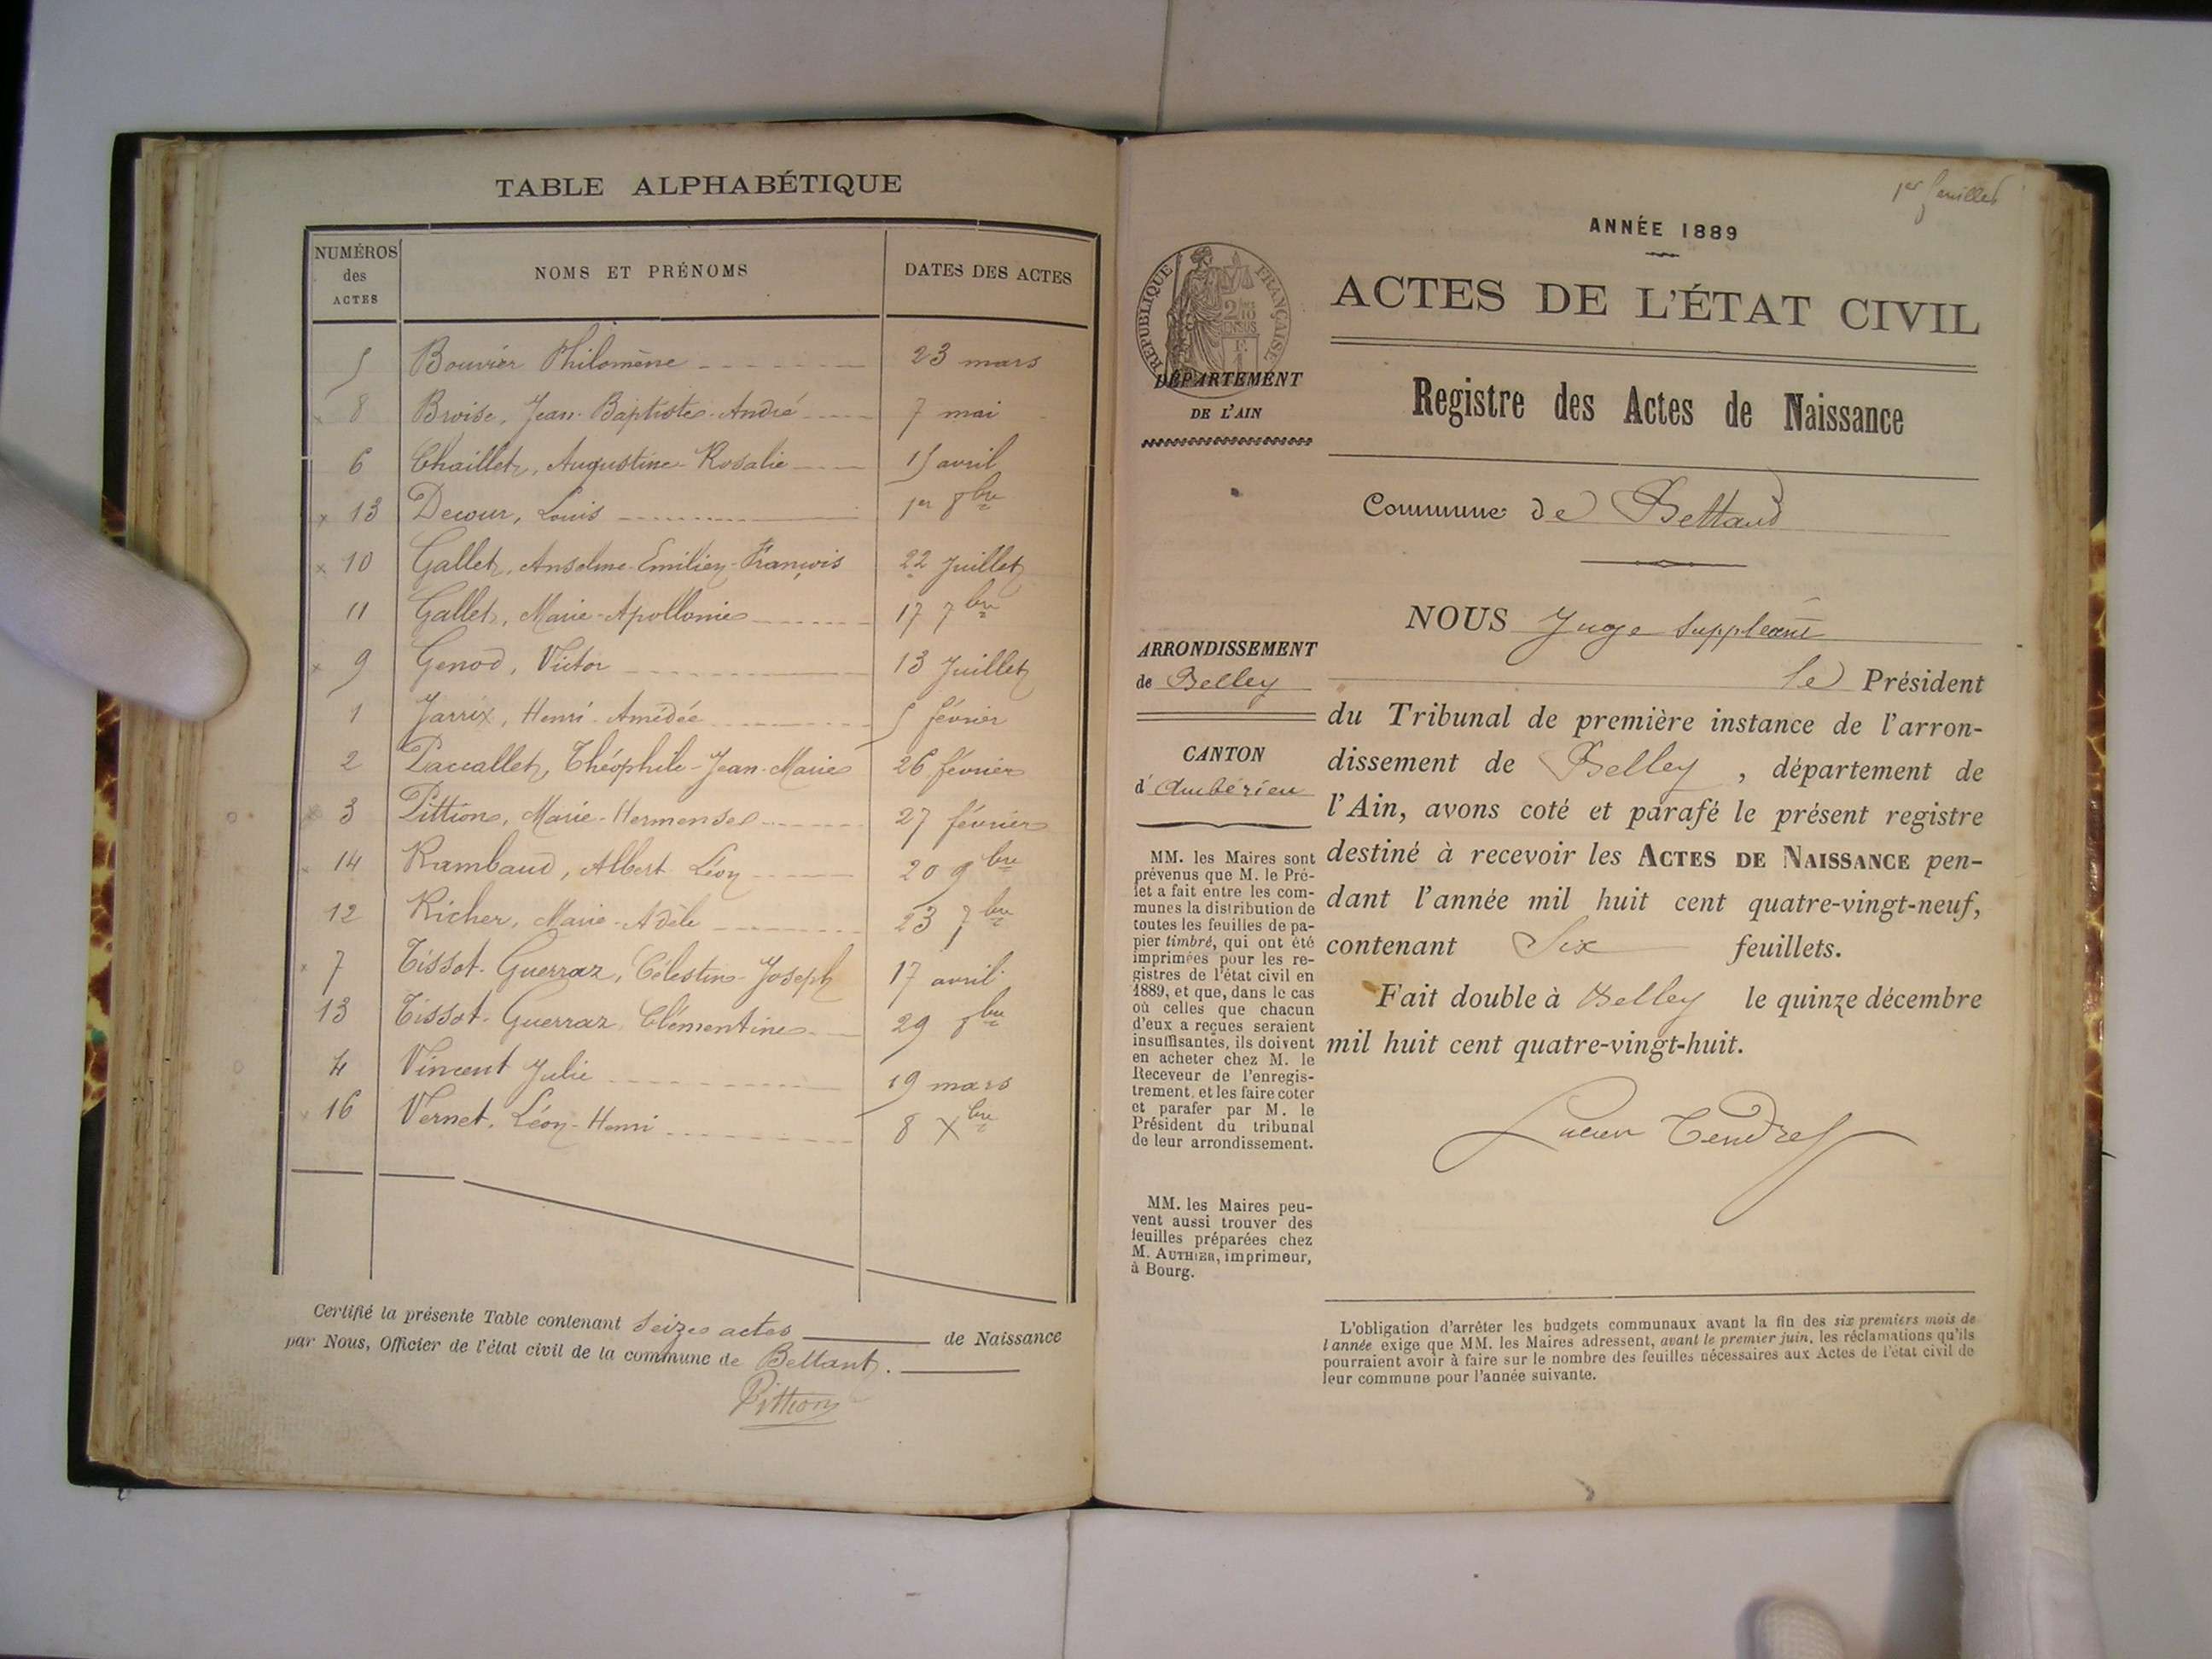 TABLE ALPHABÉTIQUE
NUMÉROS des ACTES
NOMS ET PRÉNOMS
DATES DES ACTES
5 Bouvier Philomène 23 mars
8 Broise, Jean-Baptiste-André 7 mai
6 Chaillet, Augustine-Rosalie 15 avril
13 Decour, Louis 1er 8bre
10 Gallet, Anselme-Emilien-François 22 Juillet
11 Gallet, Marie-Apollonie 17 7bre
9 Genod, Victor 13 Juillet
1 Jarrix, Henri-Amédée 5 février
2 Paccallet, Théophile-Jean-Marie 26 février
3 Pittion, Marie-Hermense 27 février
14 Rambaud, Albert Léon 20 9bre
12 Richer, Marie-Adèle 23 7bre
7 Tissot-Guerraz, Célestin-Joseph 17 avril
13 Tissot-Guerraz Clémentine 29 8bre
4 Vincent Julie 19 mars
16 Vernet, Léon-Henri 8 Xbre
Certifié la présente Table contenant Seize actes de Naissance
par Nous, Officier de l'état civil de la commune de Bettant.
Pittion
1er feuillet
ANNÉE 1889
ACTES DE L'ÉTAT CIVIL
RÉPUBLIQUE FRANÇAISE
DÉPARTEMENT
DE L'AIN
Registre des Actes de Naissance
Commune de Bettand
ARRONDISSEMENT
de Belley
CANTON
d'Ambérieu
MM. les Maires sont
prévenus que M. le Pré-
fet a fait entre les com-
munes la distribution de
toutes les feuilles de pa-
pier timbré, qui ont été
imprimées pour les re-
gistres de l'état civil en
1889, et que, dans le cas
où celles que chacun
d'eux a reçues seraient
insuffisantes, ils doivent
en acheter chez M. le
Receveur de l'enregis-
trement, et les faire coter
et parafer par M. le
Président du tribunal
de leur arrondissement.
MM. les Maires peu-
vent aussi trouver des
feuilles préparées chez
M. AUTHIER, imprimeur,
à Bourg.
NOUS Juge suppléant
le Président
du Tribunal de première instance de l'arron-
dissement de Belley, département de
l'Ain, avons coté et parafé le présent registre
destiné à recevoir les ACTES DE NAISSANCE pen-
dant l'année mil huit cent quatre-vingt-neuf,
contenant Six feuillets.
Fait double à Belley le quinze décembre
mil huit cent quatre-vingt-huit.
Lucien Tendret
L'obligation d'arrêter les budgets communaux avant la fin des six premiers mois de
l'année exige que MM. les Maires adressent, avant le premier juin, les réclamations qu'ils
pourraient avoir à faire sur le nombre des feuilles nécessaires aux Actes de l'état civil de
leur commune pour l'année suivante.